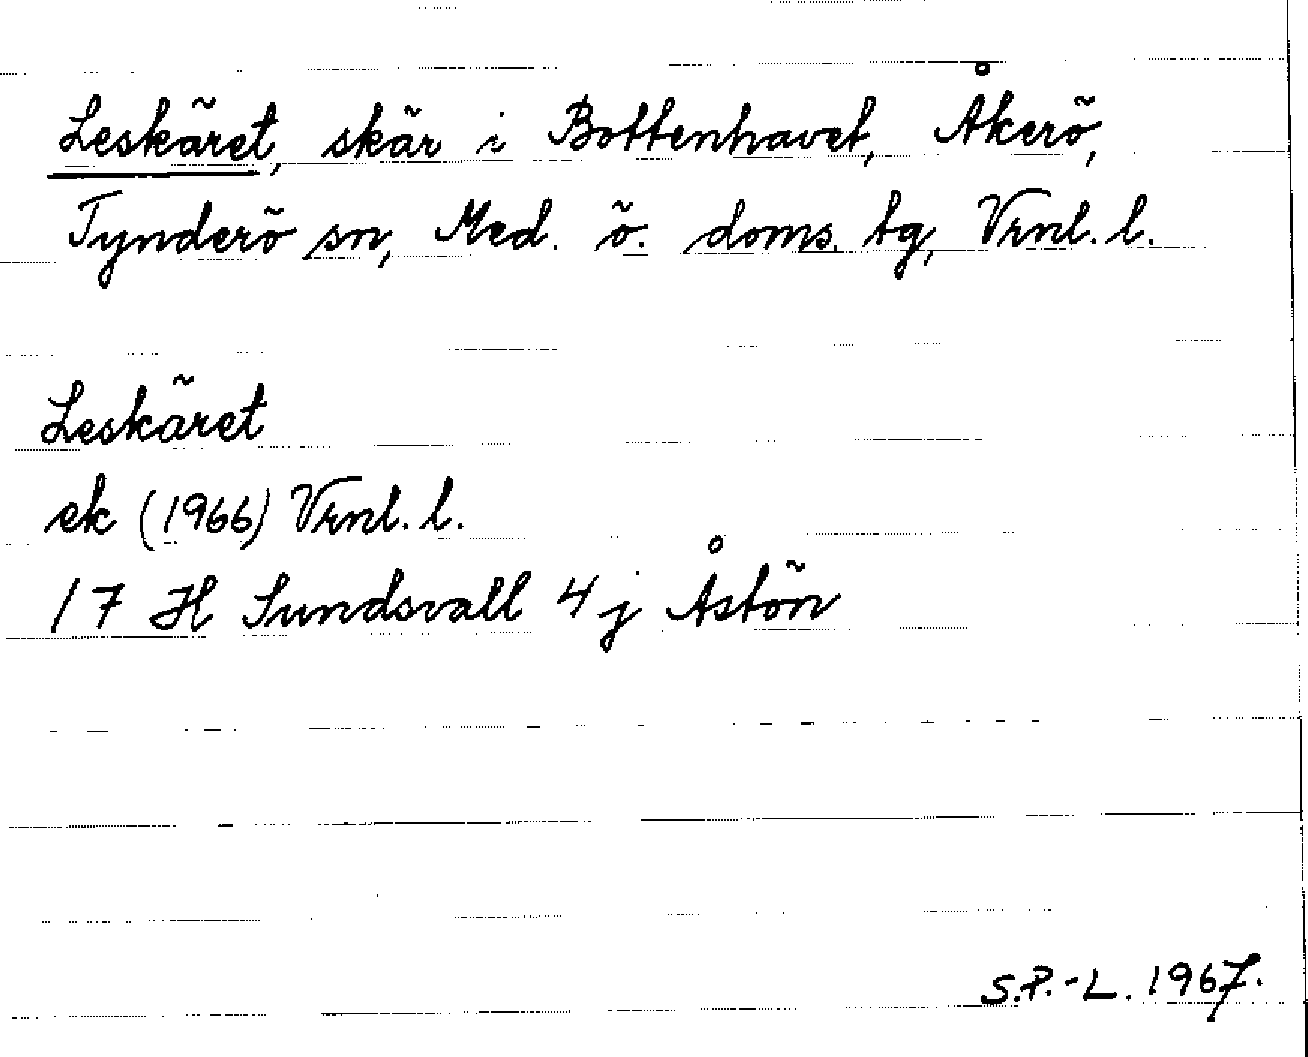 Leskäret, skär i Bottenhavet, Åkerö,
Tynderö sn, Med. ö. doms. tg, Vrnl. l.
Leskäret
ek (1966) Vrnl. l.
17 H Sundsvall 4 j Åstön
S.P.-L. 1967.